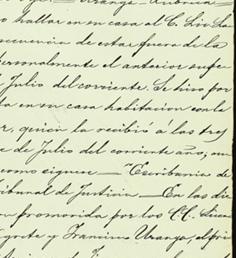 o hallar en su casa al C. Lic. Sa
ecuencia de estar fuera de la
ersonalmente el anterior
Julio del corriente. Se hizo por
la en su casa habitacion con le
r, quien la recibio á las tres
e de Julio del corriente año; un
como sigue: — "Escribania de
ibunal de Justicia — En las di
n promovida por los CC. Licen
gorte y Francisco Uranga, el pri